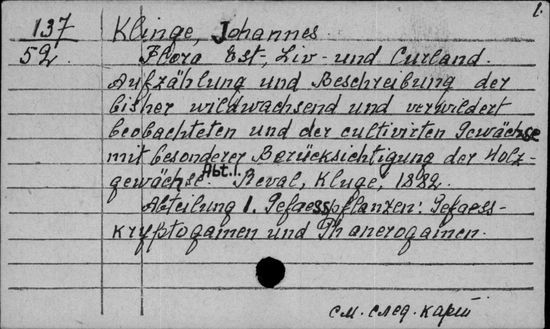 1.
137
52
Klinge, Johannes.
Flora Est-, Liv- und Curland.
Aufzählung und Beschreibung der
bisher wildwachsend und verwildert
beobachteten und der cultivirten Gewächse
mit besonderer Berücksichtigung der Holz-
gewächse. Abt. 1. Reval, Kluge, 1882.
Abteilung 1. Gefaesspflanzen: Gefaess-
kryptogamen und Phanerogamen.
см. след. карт